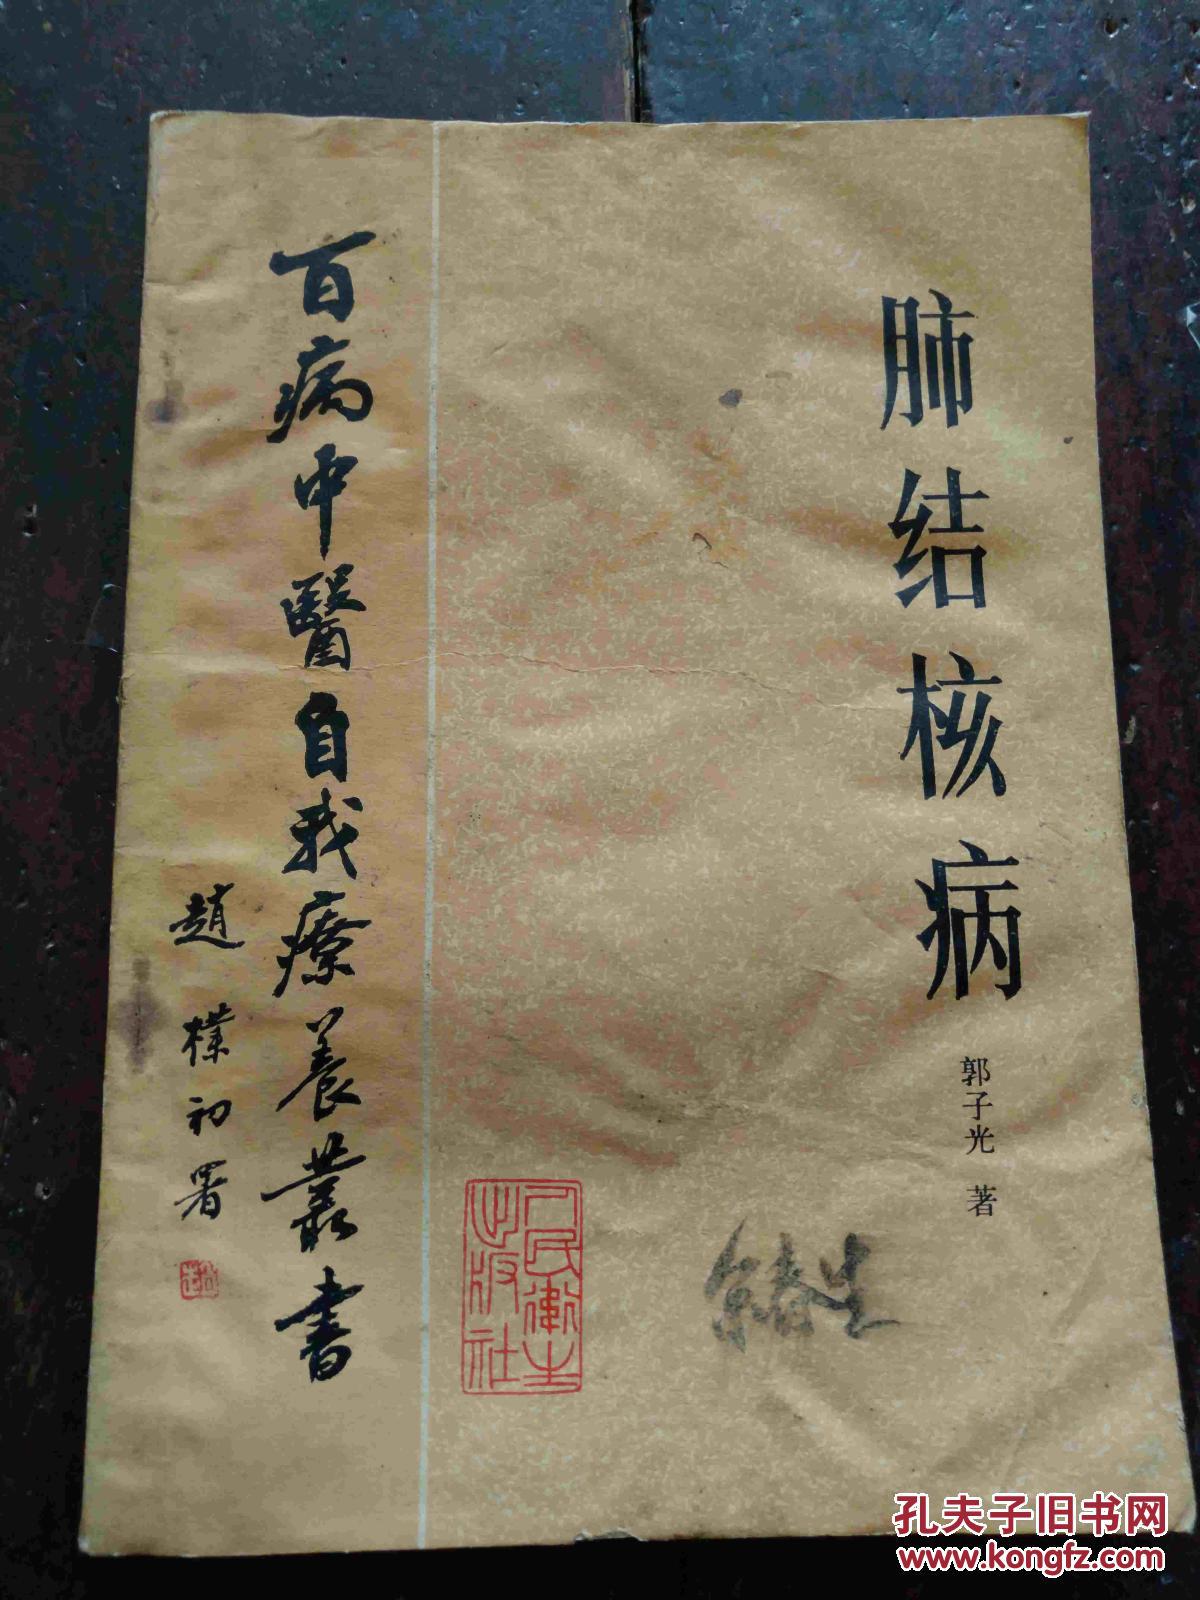 肺结核病
郭子光 著
百病中醫自我療養叢書
趙樸初署
人民衛生出版社
孔夫子旧书网
www.kongfz.com